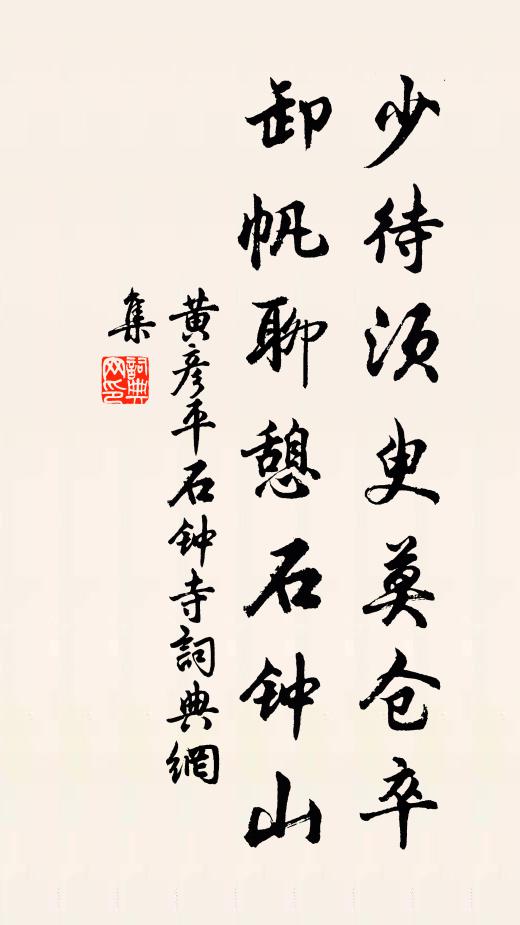 少待须臾莫仓卒
卸帆聊憩石钟山
黄彦平石钟寺詞典網
集
詞典
网印